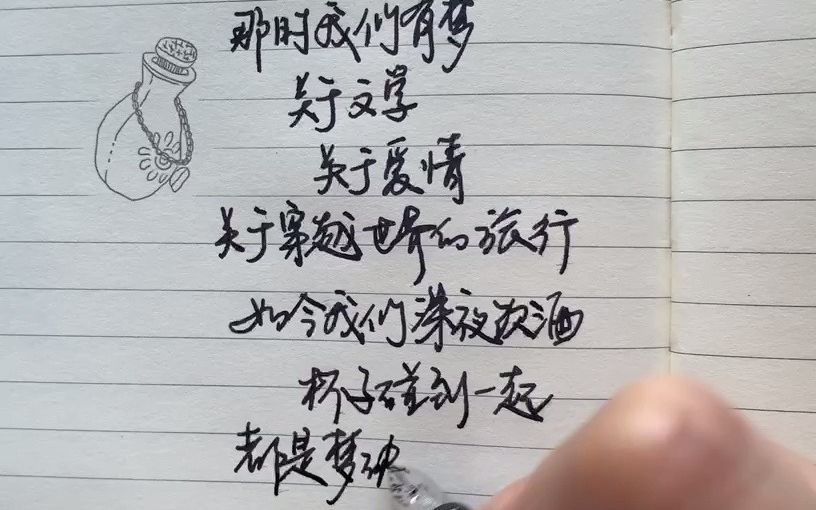 那时我们有梦
关于文学
关于爱情
关于穿越世界的旅行
如今我们深夜饮酒
杯子碰到一起
都是梦破